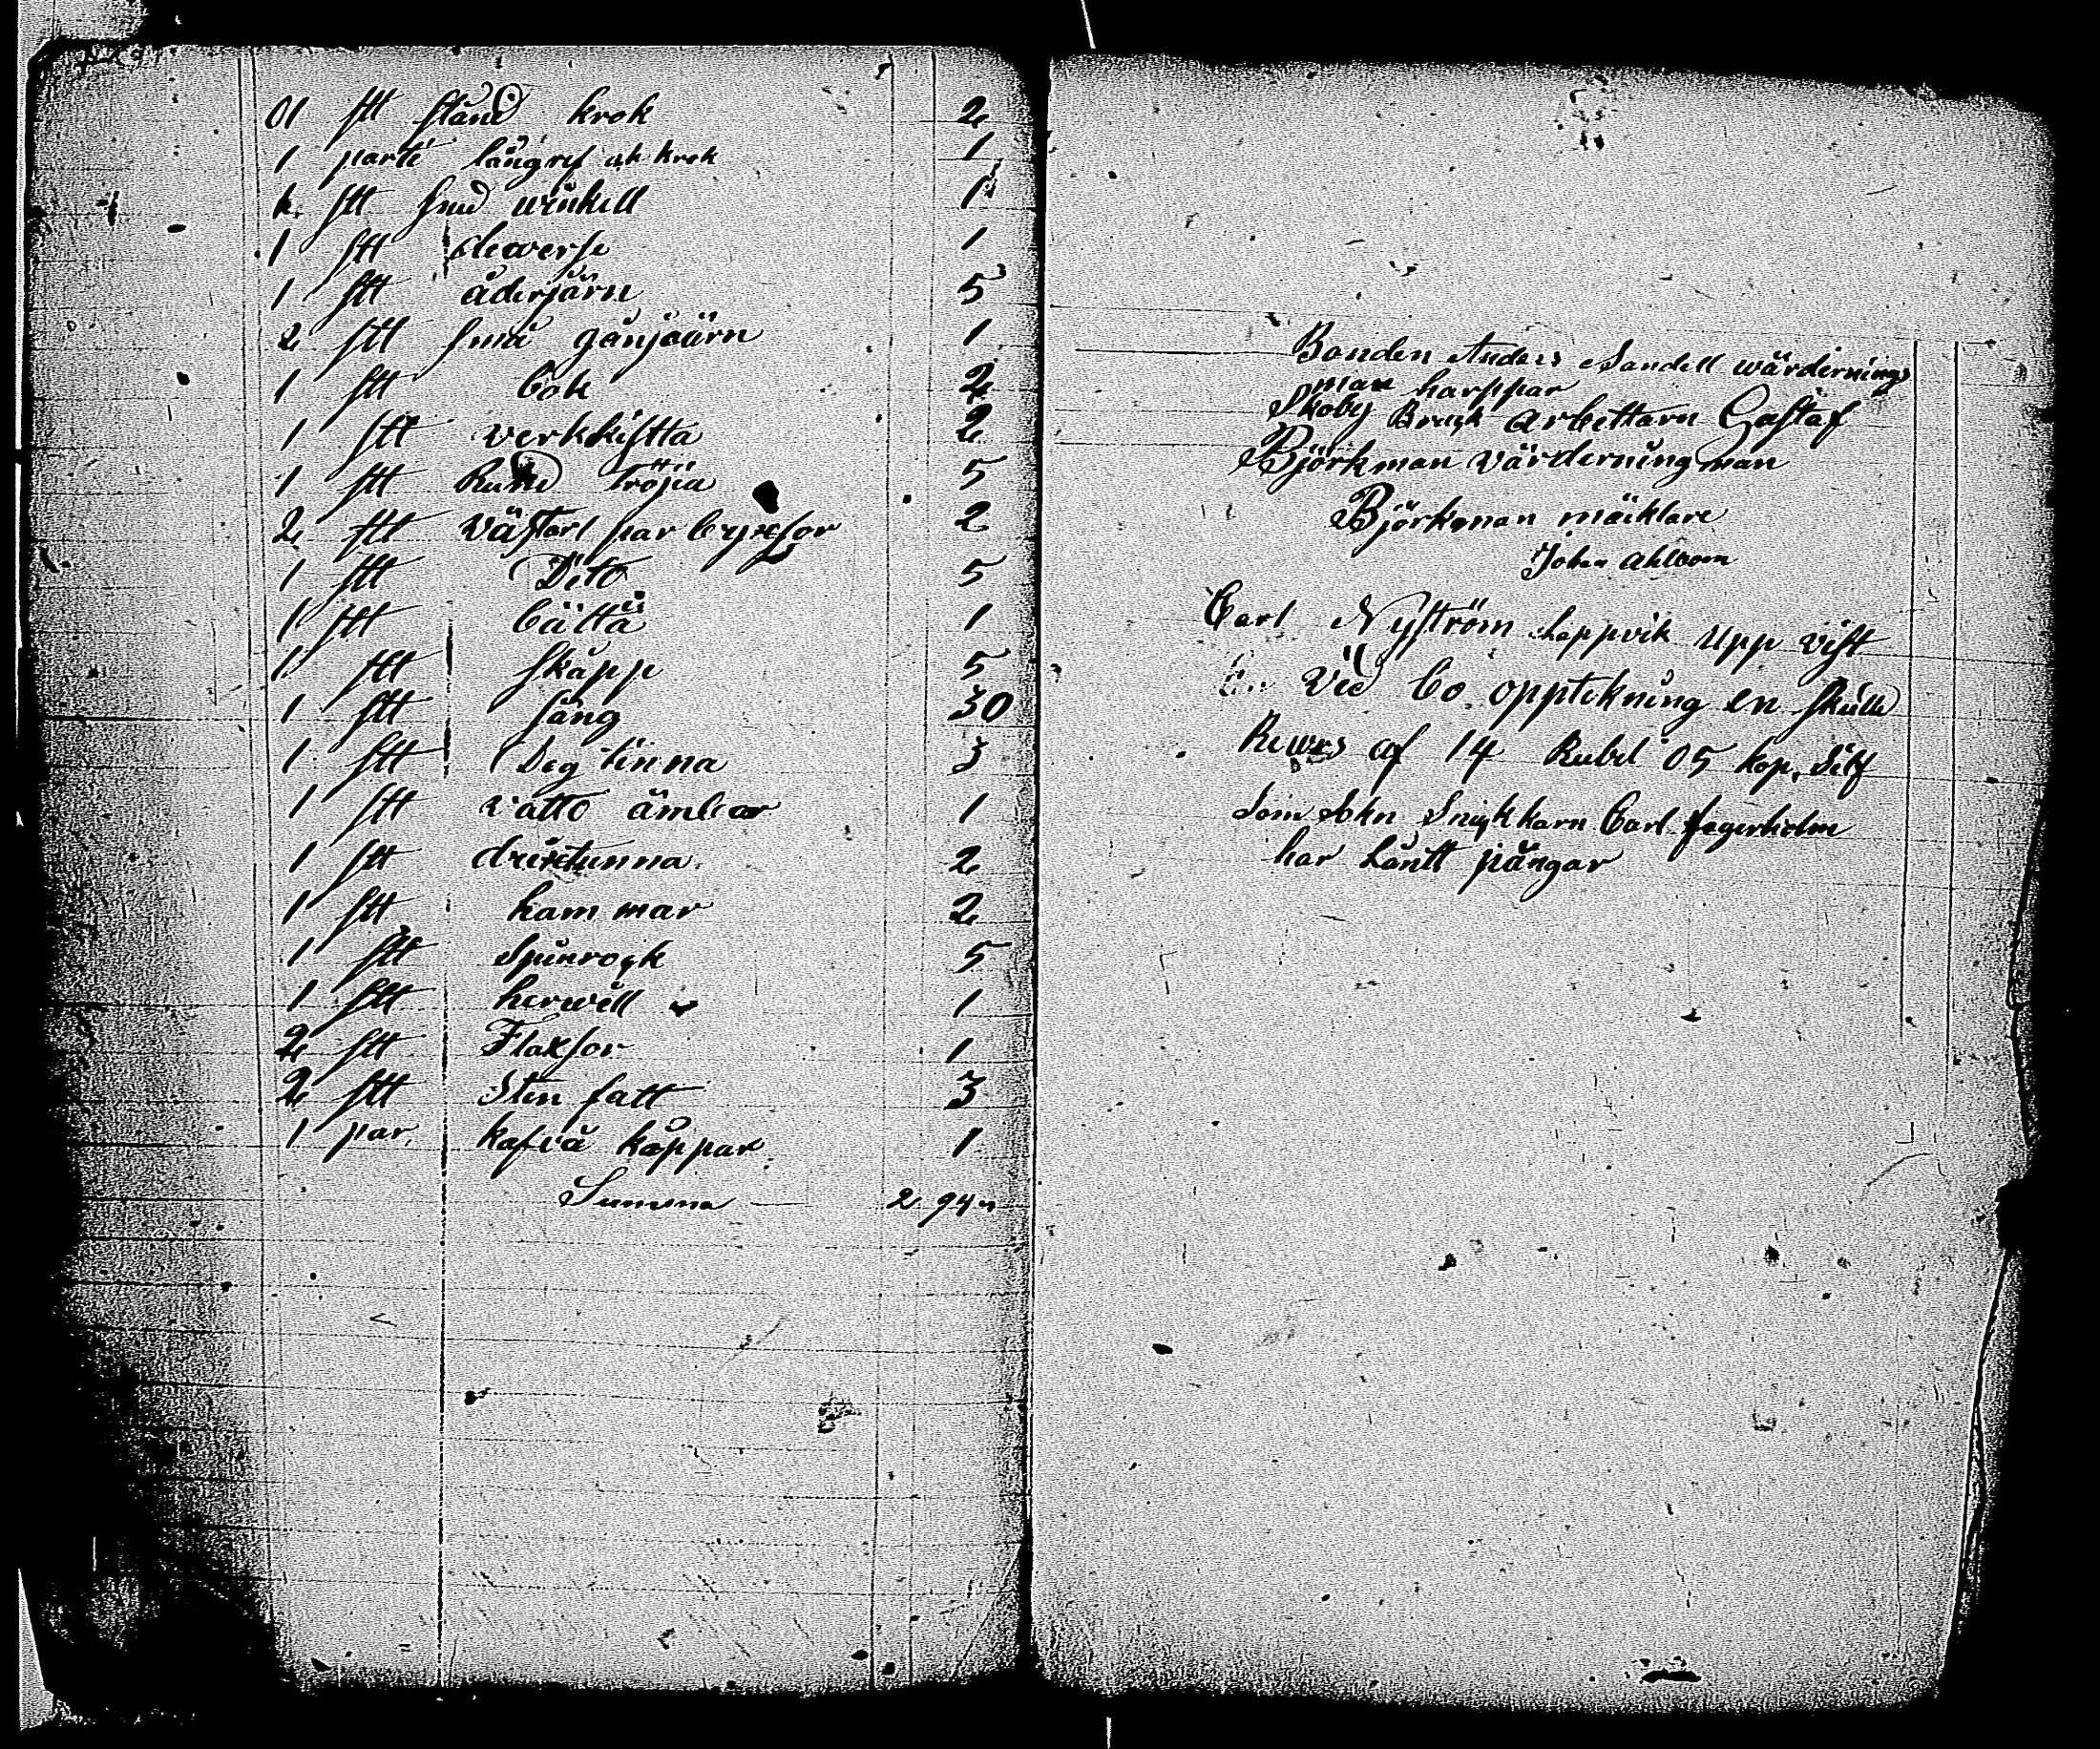 01 stt stånd krok 2
1 parti långref ok krok 1
stt smed winkell 1
1 stt dewerse 1
1 stt åderjärn 5
2 stt små gänjaärn 1
1 stt bok 2
1 stt verkkistta 2
1 stt Rund Tröjia 5
2 stt västart par byxsor 2
1 stt Dito 5
1 stt bätta 1
1 stt skåpp 5
1 stt säng 30
1 stt Deg tinna 3
1 stt vatto ämbar 1
1 stt drixtunna 2
1 stt kammar 2
1 stt Spinrogk 5
1 stt herwell 1
2 stt Flaksor 1
2 stt Sten fatt 3
1 par kafvä koppar 1
Summa 2 94
Bonden Anders Sandell wärdernings
man harppar
Skoby Brugk arbettarn Gustaf
Björkman värderningman
Björkman mäcklare
Johan Ahlbom
Carl Nyström Lappvik upp vist
Ved bo opptekning en skulle
Rewers af 14 Rubel 05 kop. Silf
Som Snigkkarn Carl Segerholm
har låntt pängar